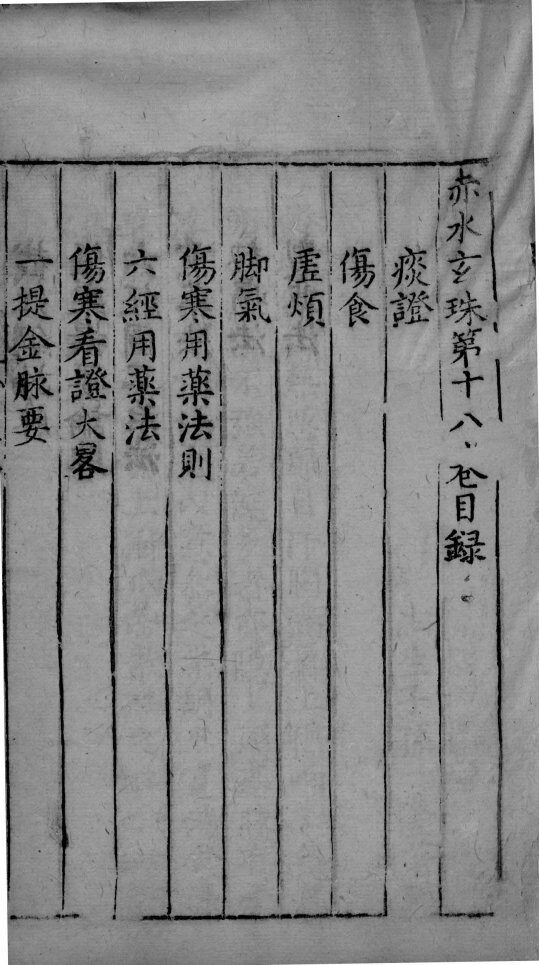 赤水玄珠第十八卷目録
痰證
傷食
虛煩
脚氣
傷寒用薬法則
六經用薬法
傷寒看證大畧
一提金脉要